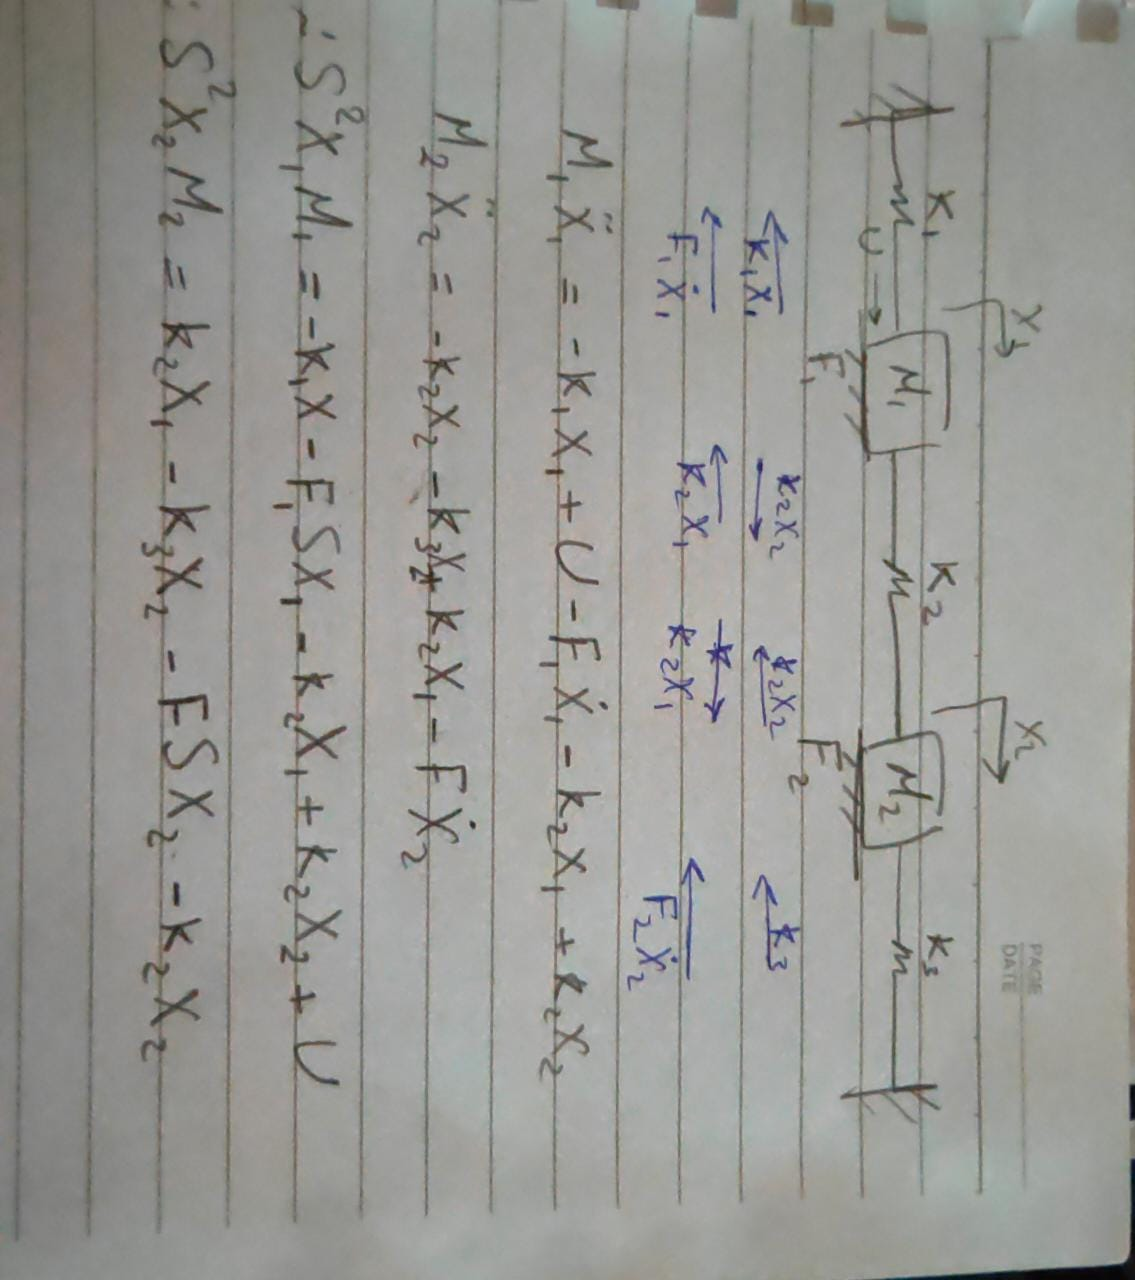 PAGE
DATE
X₁ X₂
K₁ K₂ K₃
U → M₁ M₂
F₁ F₂
K₁X₁ K₂X₂ K₂X₂ K₃
F₁Ẋ₁ K₂X₁ K₂X₁ F₂Ẋ₂
M₁Ẍ₁ = -K₁X₁ + U - F₁Ẋ₁ - K₂X₁ + K₂X₂
M₂Ẍ₂ = -K₂X₂ - K₃X₂ + K₂X₁ - FẊ₂
∴ S²X₁M₁ = -K₁X - F₁SX₁ - K₂X₁ + K₂X₂ + U
: S²X₂M₂ = K₂X₁ - K₃X₂ - FSX₂ - K₂X₂